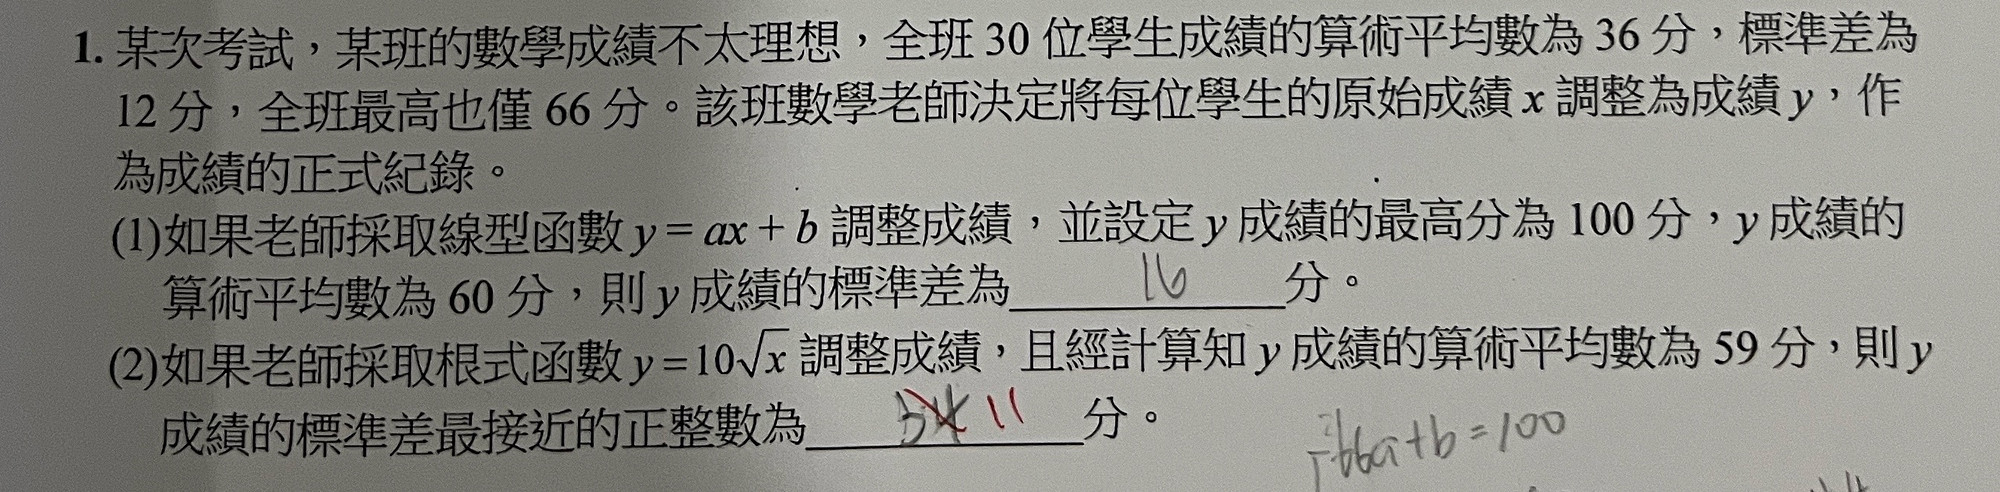 1. 某次考試，某班的數學成績不太理想，全班 30 位學生成績的算術平均數為 36 分，標準差為
12 分，全班最高也僅 66 分。該班數學老師決定將每位學生的原始成績 x 調整為成績 y，作
為成績的正式紀錄。
(1)如果老師採取線型函數 y = ax + b 調整成績，並設定 y 成績的最高分為 100 分，y 成績的
算術平均數為 60 分，則 y 成績的標準差為 16 分。
(2)如果老師採取根式函數 y = 10√x 調整成績，且經計算知 y 成績的算術平均數為 59 分，則 y
成績的標準差最接近的正整數為 11 分。
66a+b=100